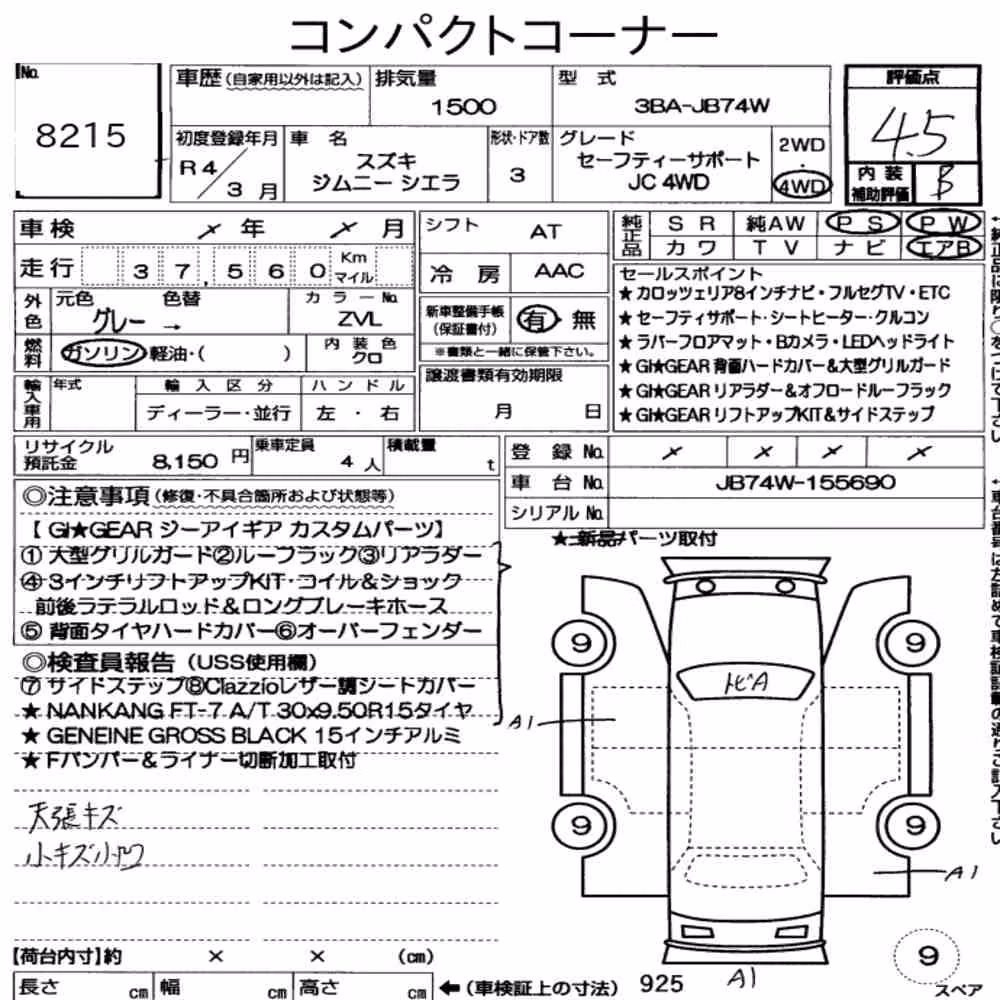 コンパクトコーナー
No. 8215
車歴 (自家用以外は記入)
排気量 1500
型 式 3BA-JB74W
評価点 4.5
初度登録年月 R4/3月
車 名 スズキ ジムニー シエラ
形状・ドア数 3
グレード セーフティーサポート JC 4WD
2WD ・ 4WD
内 装 補助評価 B
車検 × 年 × 月
シフト AT
純正品 SR 純AW PS PW
カワ TV ナビ エアB
走行 37,560 Km マイル
冷 房 AAC
外色 元色 グレー → 色替
カラーNo. ZVL
新車整備手帳 (保証書付) 有・無
※書類と一緒に保管下さい。
燃料 ガソリン・軽油・( )
内 装 色 クロ
輸入車用 年式 輸 入 区 分 ハ ン ド ル
ディーラー・並行 左 ・ 右
譲渡書類有効期限
月 日
セールスポイント
★ カロッツェリア8インチナビ・フルセグTV・ETC
★ セーフティサポート・シートヒーター・クルコン
★ ラバーフロアマット・Bカメラ・LEDヘッドライト
★ GI★GEAR 背面ハードカバー&大型グリルガード
★ GI★GEAR リアラダー&オフロードルーフラック
★ GI★GEAR リフトアップKIT&サイドステップ
リサイクル預託金 8,150 円
乗車定員 4 人
積載量 t
登 録 No. × × × ×
車 台 No. JB74W-155690
シリアル No.
◎注意事項 (修復・不具合箇所および状態等)
【 GI★GEAR ジーアイギア カスタムパーツ】
① 大型グリルガード②ルーフラック③リアラダー
④ 3インチリフトアップKIT・コイル&ショック
前後ラテラルロッド&ロングブレーキホース
⑤ 背面タイヤハードカバー⑥オーバーフェンダー
◎検査員報告 (USS使用欄)
⑦ サイドステップ⑧Clazzioレザー調シートカバー
★ NANKANG FT-7 A/T 30x9.50R15タイヤ
★ GENEINE GROSS BLACK 15インチアルミ
★ Fバンパー&ライナー切断加工取付
天張キズ
小キズ小凹
★ 新品パーツ取付
9
9
トビA
A1
9
9
A1
9
スペア
A1
【荷台内寸】約 × × (cm)
長さ cm 幅 cm 高さ cm ←(車検証上の寸法) 925